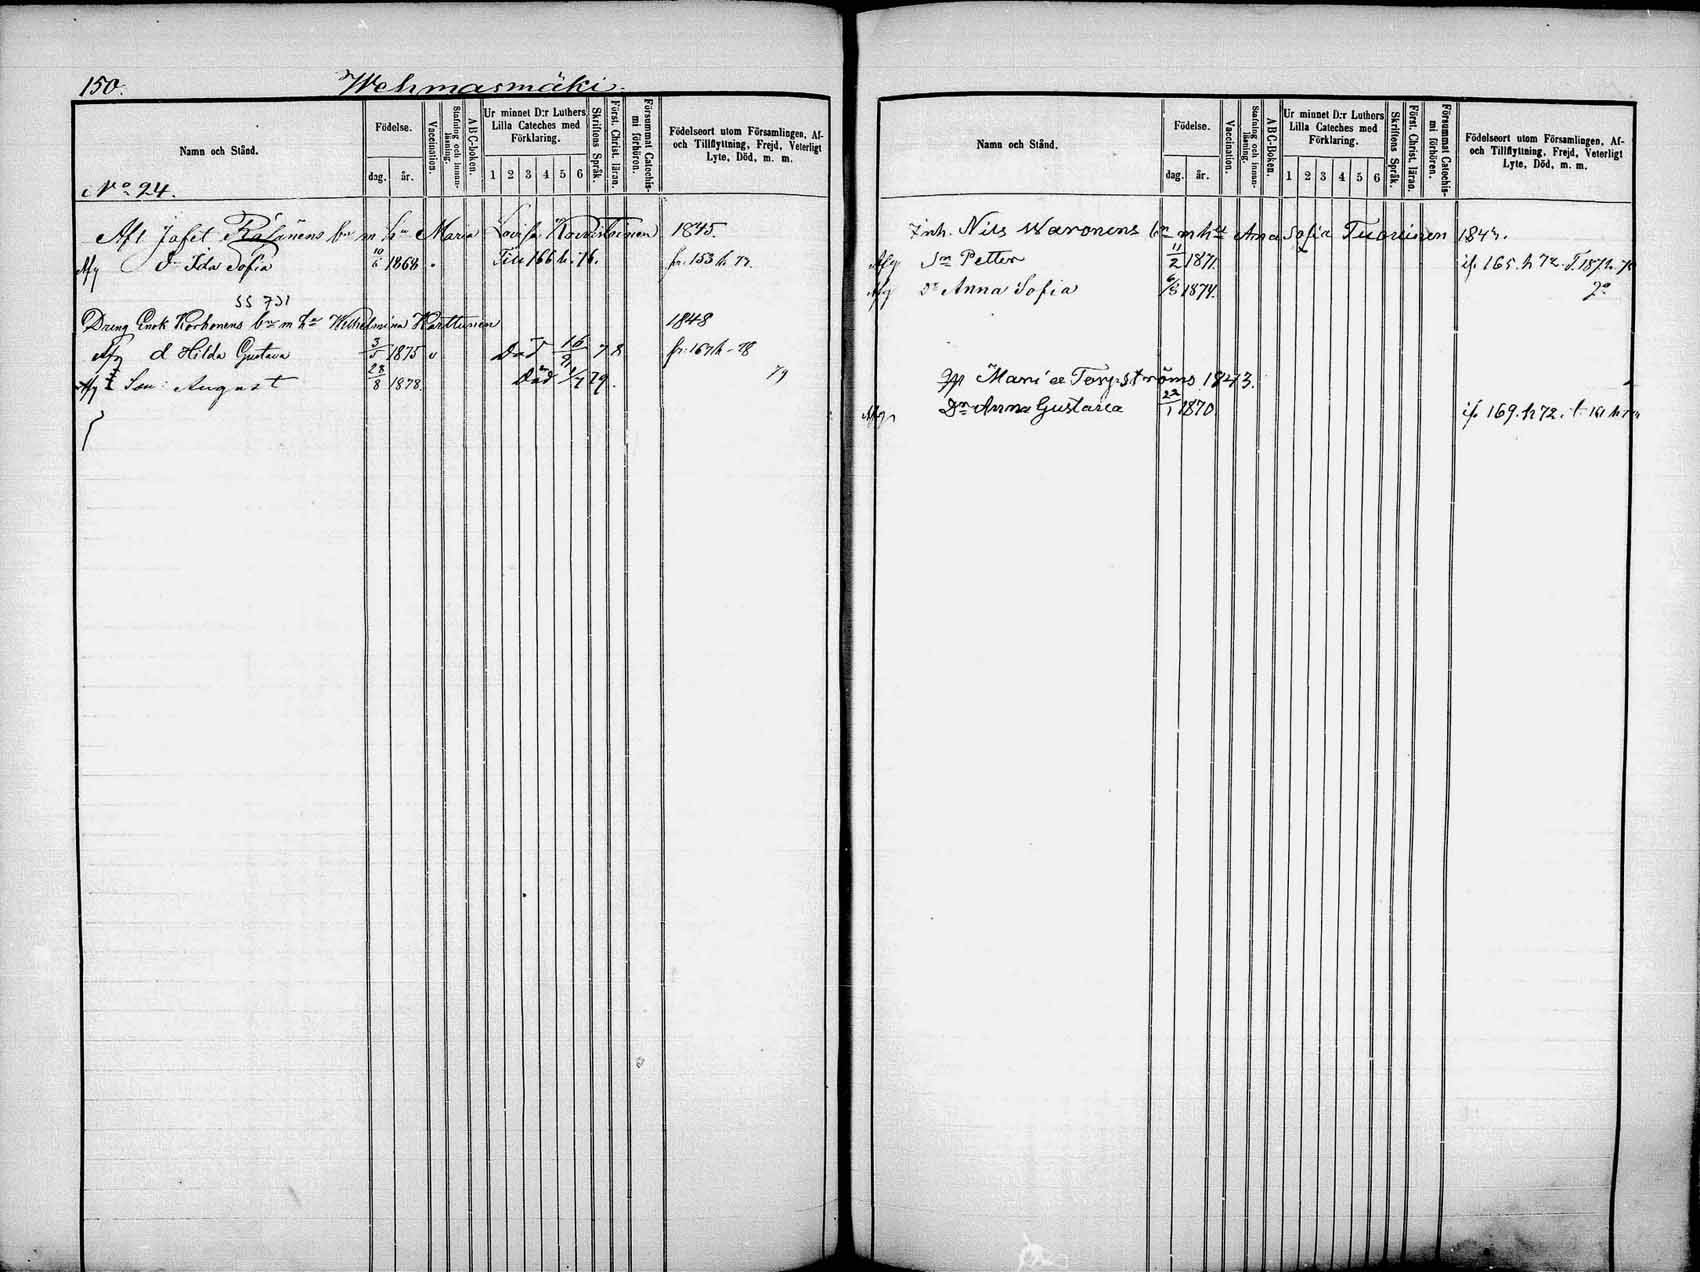 150. Wehmasmäki.
Namn och Stånd.
Födelse.
dag. år.
Vaccination.
Stafning och innanläsning.
ABC-boken.
Ur minnet D:r Luthers Lilla Cateches med Förklaring.
1 2 3 4 5 6
Skriftens Språk.
Först. Christ. läran.
Försummat Catechismi förhören.
Födelseort utom Församlingen, Af- och Tillflyttning, Frejd, Veterligt Lyte, Död, m. m.
No 24.
Afl Jafet Räsänens br m hu Maria Lovisa 1845.
Afg dr Ida Sofia 10/6 1868 Till 166 h. 76. fr. 153 h 73.
SS 731
Dreng Enok Korhonens br m hu Wilhelmina Karttunen 1848
Afg d Hilda Gustava 3/5 1875 v Död 16/9 78 fr. 167 h - 78
Afg Son: August 28/8 1878. Död 1/4 79. 79
Namn och Stånd.
Födelse.
dag. år.
Vaccination.
Stafning och innanläsning.
ABC-Boken.
Ur minnet D:r Luthers Lilla Cateches med Förklaring.
1 2 3 4 5 6
Skriftens Språk.
Först. Christ. läran.
Försummat Catechismi förhören.
Födelseort utom Församlingen, Af- och Tillflyttning, Frejd, Veterligt Lyte, Död, m. m.
Inh. Nils Waronens br m hu Ana Sofia Tuovinen 1847.
Afg Sn Petter 11/2 1871. if. 165. h 72.
Afg Dr Anna Sofia 6/8 1874. Do
Maria Terpströms 1843.
Afg Dr Anna Gustava 22/1 1870 if. 169. h 72.